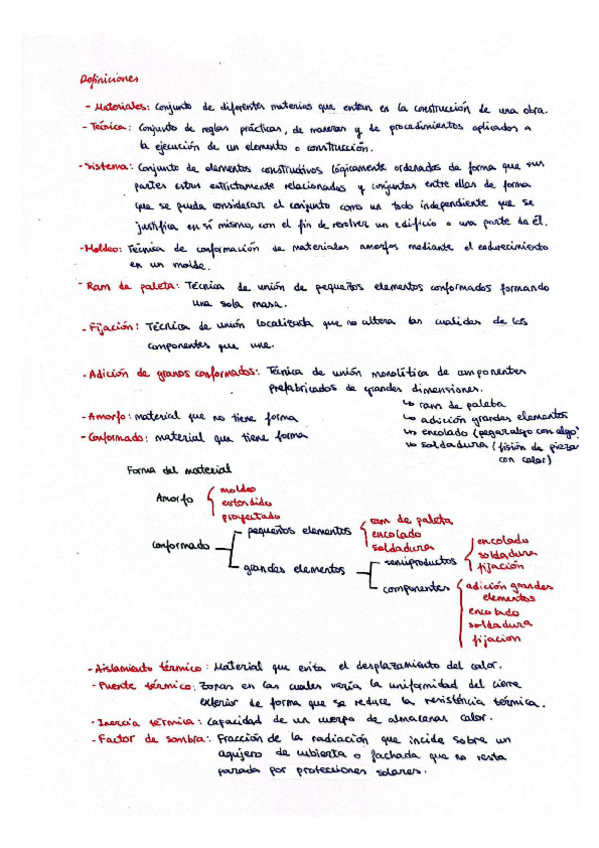 Definiciones
- Materiales: Conjunto de diferentes materias que entran en la construcción de una obra.
- Técnica: Conjunto de reglas prácticas, de maneras y de procedimientos aplicados a
la ejecución de un elemento o construcción.
- Sistema: Conjunto de elementos constructivos lógicamente ordenados de forma que sus
partes estan estrictamente relacionadas y conjuntas entre ellas de forma
que se pueda considerar el conjunto como un todo independiente que se
justifica en sí mismo, con el fin de resolver un edificio o una parte de él.
- Moldeo: Técnica de conformación de materiales amorfos mediante el endurecimiento
en un molde.
- Ram de paleta: Técnica de unión de pequeños elementos conformados formando
una sola masa.
- Fijación: Técnica de unión localizada que no altera las cualides de los
componentes que une.
- Adición de granos conformados: Técnica de unión monolítica de componentes
prefabricados de grandes dimensiones.
↳ ram de paleta
- Amorfo: material que no tiene forma
↳ adición grandes elementos
- Conformado: material que tiene forma
↳ encolado (pegar algo con algo)
↳ soldadura (fisión de pieza
con calor)
Forma del material
Amorfo
moldeo
extendido
proyectado
conformado
pequeños elementos
ram de paleta
encolado
soldadura
grandes elementos
semiproductos
encolado
soldadura
fijación
componentes
adición grandes
elementos
encolado
soldadura
fijacion
- Aislamiento térmico: Material que evita el desplazamiento del calor.
- Puente térmico: Zonas en las cuales varía la uniformidad del cierre
exterior de forma que se reduce la resisténcia térmica.
- Inercia térmica: Capacidad de un cuerpo de almacenar calor.
- Factor de sombra: Fracción de la radiación que incide sobre un
agujero de cubierta o fachada que no resta
parada por protecciones solares.